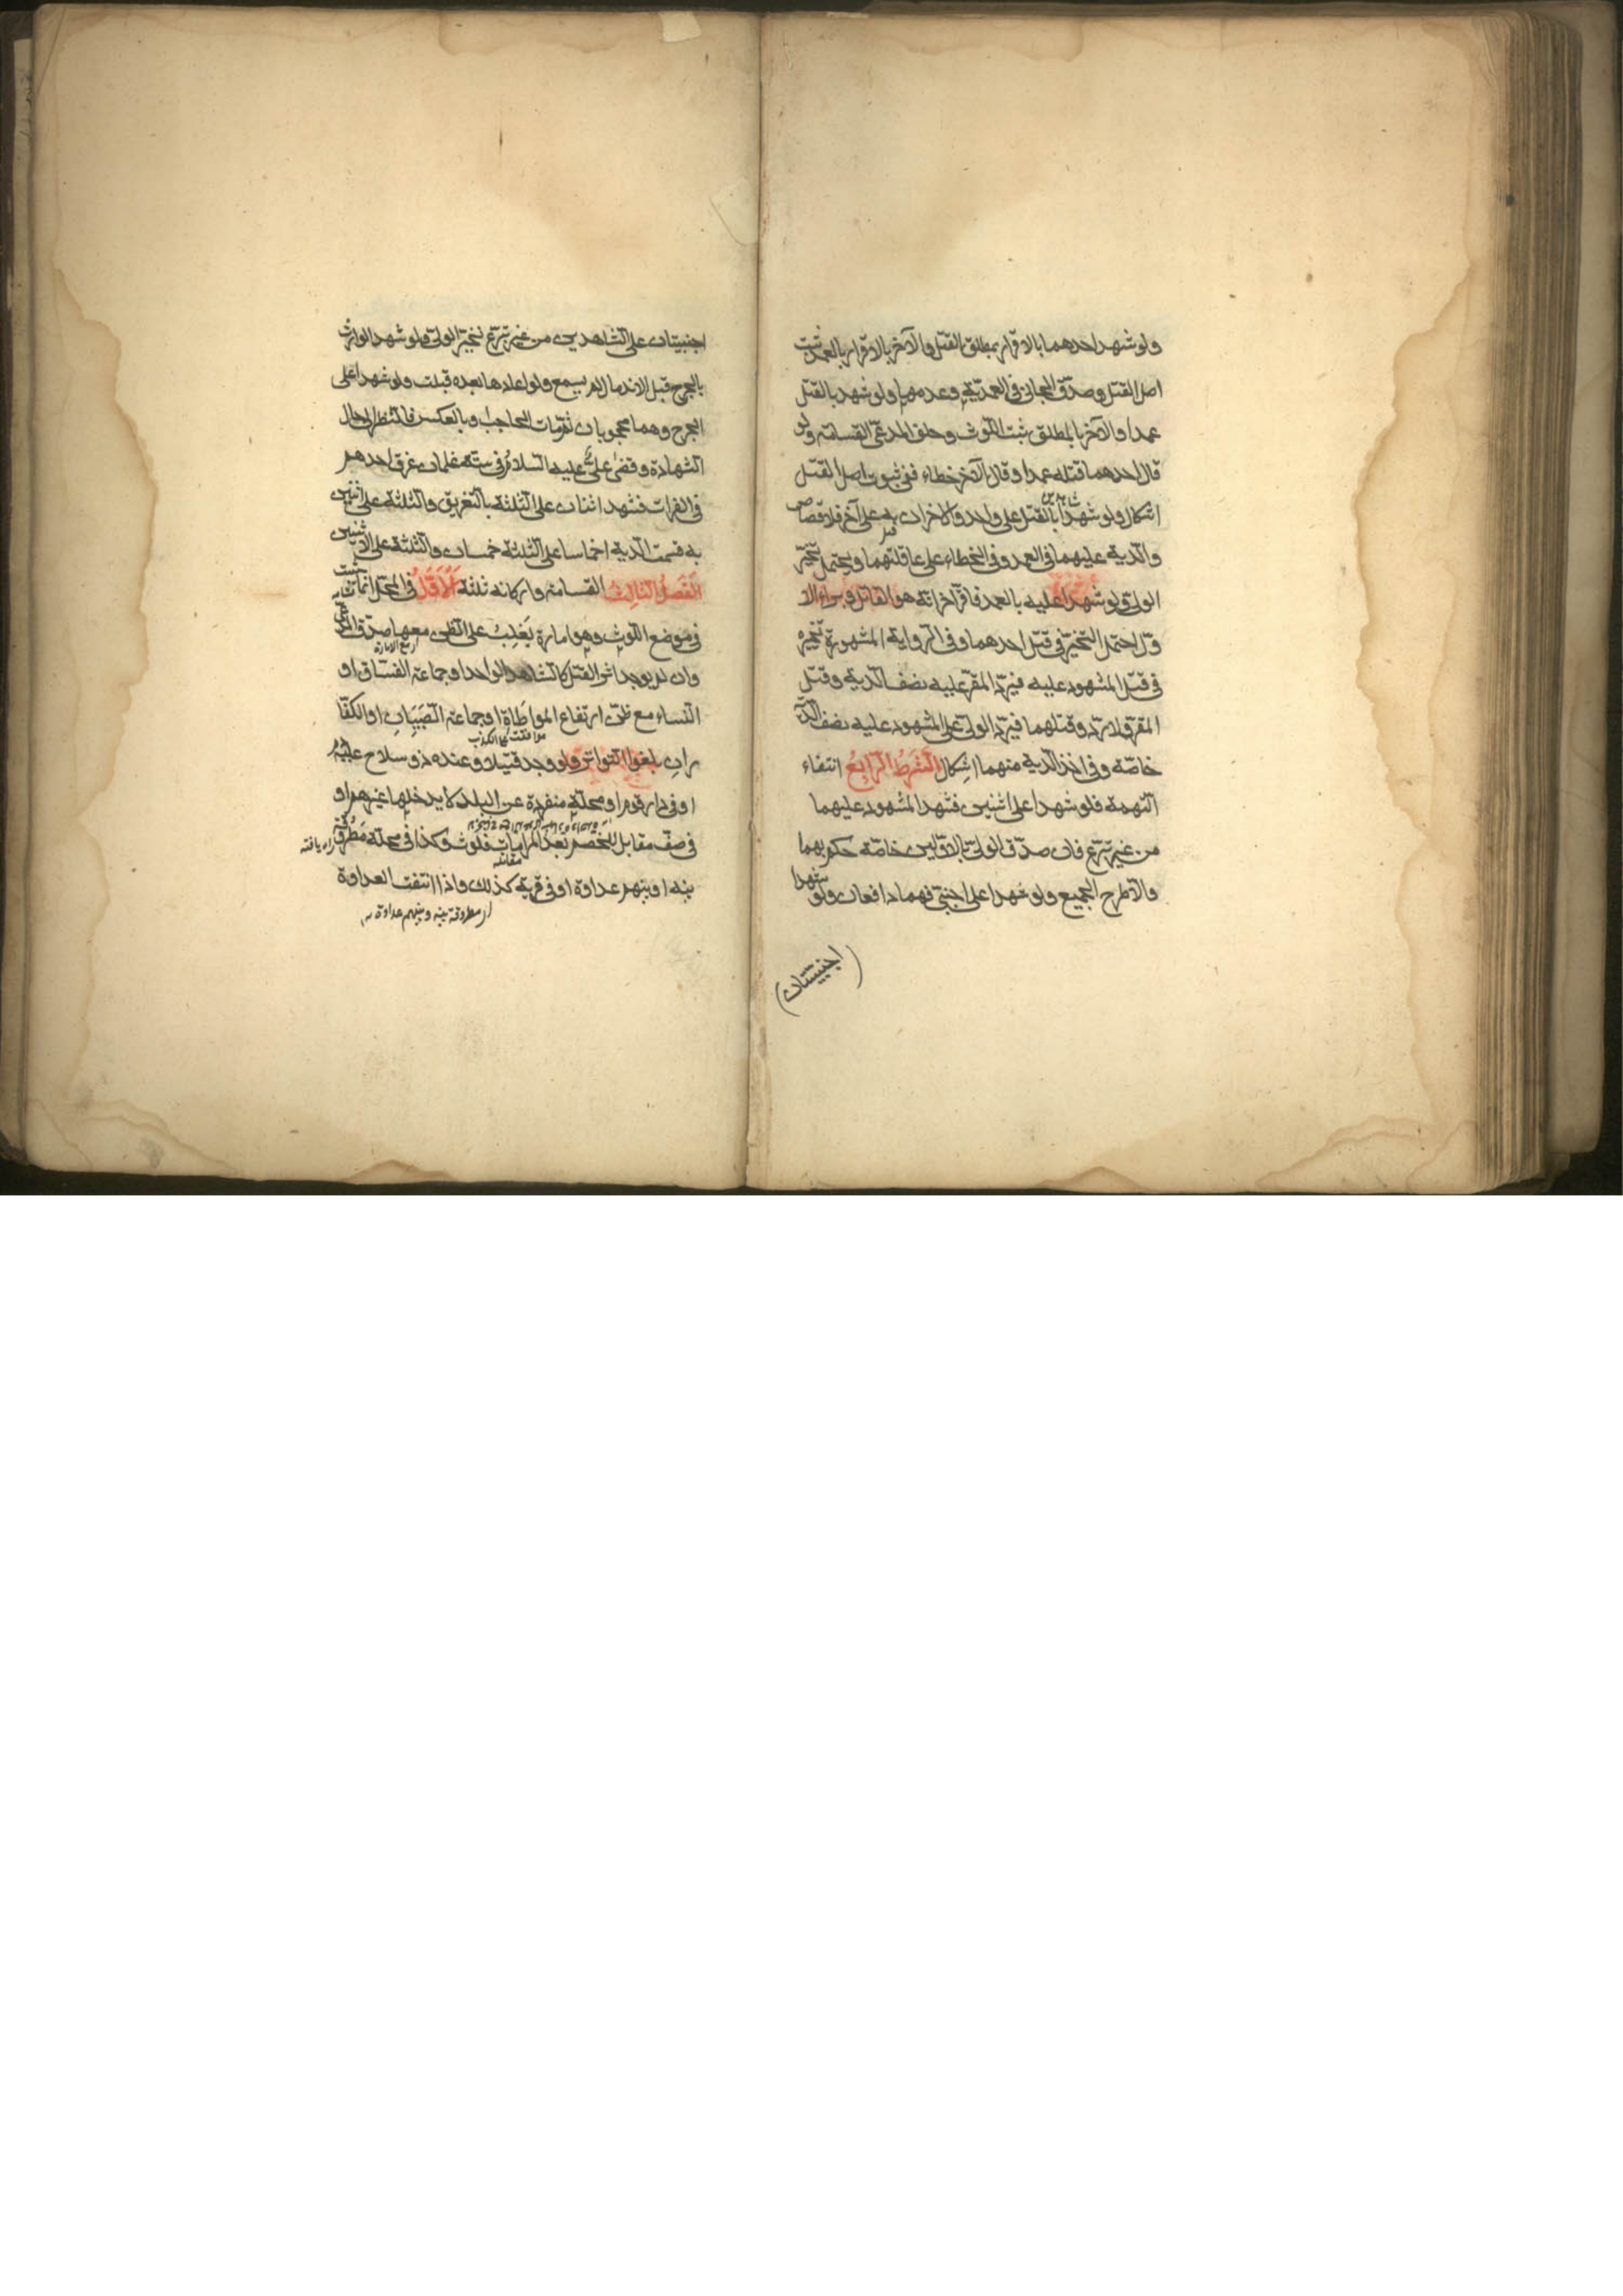 ولو شهد احدهما بالاقرار بمطلق القتل والآخر بالاقرار بالعمد ثبت
اصل القتل وصدّق الجاني في العمديّة وعدمها ولو شهد بالقتل
عمدا والآخر بالمطلق ثبت اللّوث وحلف المدعي القسامة ولو
قال احدهما قتله عمدا وقال الآخر خطاء ففي ثبوت اصل القتل
اشكال ولو شهدا بالقتل على واحد والاخران به على آخر فلا قصاص
والدية عليهما في العمد وفي الخطاء على عاقلتهما ويحتمل تخيّر
الولي ولو شهدا عليه بالعمد فاقرّ آخر انّه هو القاتل وبراء الا
وّل احتمل التخيّر في قتل احدهما وفي الرواية المشهورة تخيره
في قتل المشهود عليه فيردّ المقر عليه نصف الدية وقتل
المقرّ ولا ردّ وقتلهما فيردّ الولي على المشهود عليه نصف الدّية
خاصّة وفي اخذ الدية منهما اشكال الشرط الرابع انتفاء
التهمة فلو شهدا على اثنين فشهد المشهود عليهما
من غير تبرّع فان صدّق الوليّ الاوّلين خاصّة حكم بهما
والآ طرح الجميع ولو شهدا على اجنبي فهما دافعان ولو شهدا
(اجنبيّتان)
اجنبيّتان على الشاهدين من غير تبرّع تخيّر الولي ولو شهد الوارث
بالجرح قبل الاندمال لم يسمع ولو اعادها بعده قبلت ولو شهدا على
الجرح وهما محجوبان ثم مات الحاجب وبالعكس فالنظر الى حال
الشهادة وقضى علي عليه السلام في ستة غلمان غرق احدهم
في الفرات فشهد اثنان على الثلثة بالتغريق والثلثة على اثنين
به قسمت الدية اخماسا على الثلثة خمسان والثلثة على الاثنين
الفصل الثالث القسامة واركانه ثلثة الاوّل في المحلّ انما تثبت
في موضع اللوث وهو امارة يَغلِبُ على الظن معها صدق المدّعي
وان لم يوجد اثر القتل كالشاهد الواحد او جماعة الفسّاق او
النساء مع ظن ارتفاع المواطاة او جماعة الصبيان او الكفّا
موافقت على الكذب
ران بلغوا التواتر ولو وجد قتيلا وعنده ذو سلاح عليه
او في دار قوم او محلّة منفردة عن البلد لا يدخلها غيرهم او
في صف مقابل للخصم بعد المراماة فلوث وكذا في محلة مَطْرُوقة
راه يافته
بينه وبينهم عداوة او في قرية كذلك واذا انتفت العداوة